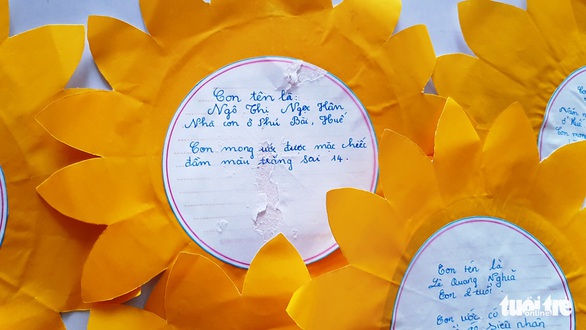 Con tên là:
Ngô Thị Ngọc Hân
Nhà con ở Phú Bài, Huế
Con mong ước được mặc chiếc
đầm màu trắng sai 14.
Con tên là
Lê Quang Nghĩa
Con 2 tuổi.
Con ước có
siêu nhân
Con mong
tuổi trẻ
online